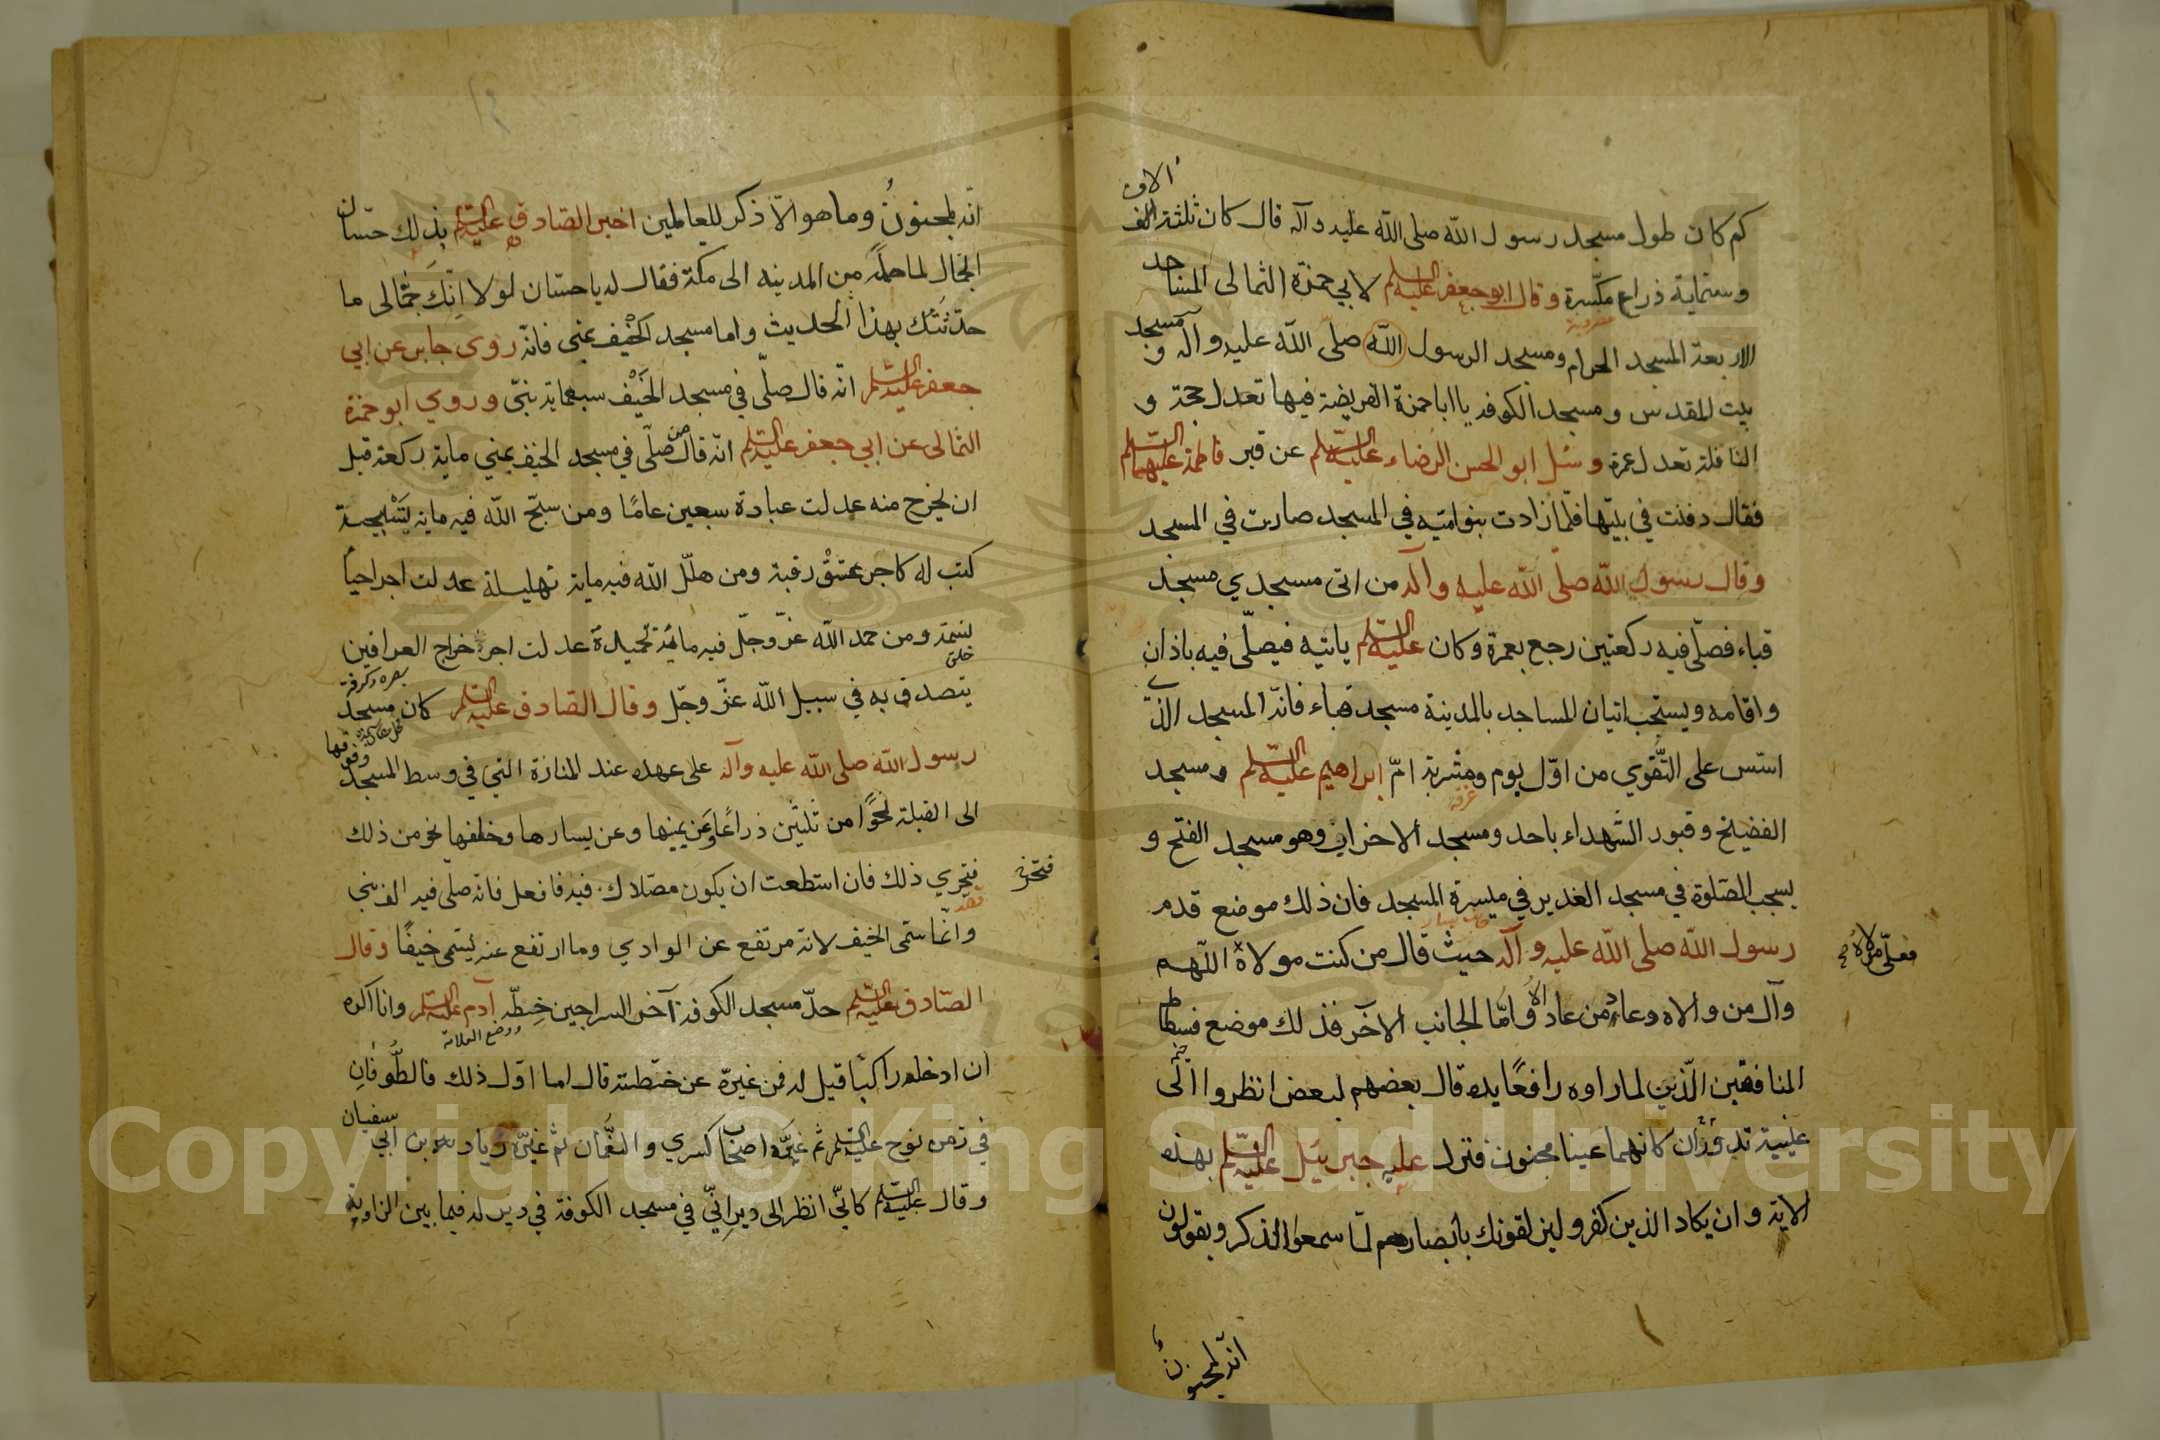 كم كان طول مسجد رسول الله صلى الله عليه وآله قال كان ثلثة الف
الاف
وستماية ذراع مكسرة وقال ابو جعفر عليه السلم لابي حمزة الثمالى المساجد
الاربعة المسجد الحرام ومسجد الرسول الله صلى الله عليه وآله و مسجد
بيت المقدس ومسجد الكوفه يا ابا حمزة الفريضة فيها تعدل حجة و
النافلة تعدل عمرة وسئل ابو الحسن الرضاء عليه السلم عن قبر فاطمة عليهما السلم
فقال دفنت في بيتها فلما زادت بنو امتيه في المسجد صارت في المسجد
وقال رسول الله صلى الله عليه وآله من اتى مسجدي مسجد
قباء فصلى فيه ركعتين رجع بعمرة وكان عليه السلم ياتيه فيصلى فيه باذان
واقامه ويستحب اتيان المساجد بالمدينة مسجد قباء فانه المسجد الذي
استس على التقوي من اول يوم ومشربة ام ابراهيم عليه السلم ومسجد
غرفه
الفضيخ وقبور الشهداء باحد ومسجد الاخراب وهو مسجد الفتح و
يسجب الصلوة في مسجد الغدير في ميسرة المسجد فان ذلك موضع قدم
رسول الله صلى الله عليه وآله حيث قال من كنت مولاه اللهم
وآل من والاه وعاد من عاداه واما الجانب الآخر فذلك موضع فسطاط
المنافقين الذين لما راوه رافعا يده قال بعضهم لبعض انظروا الى
عينيه تدوران كانهما عينا مجنون فنزل عليه جبرئيل عليه السلم بهذه
الاية وان يكاد الذين كفرو ليزلقونك بابصارهم لما سمعوا الذكر ويقولون
انه لمجنون
انه لمجنون وما هو الا ذكر للعالمين اخبر الصادق عليه السلم بذلك حسان
الجمال لما حمله من المدينه الى مكة فقال له يا حسان لولا انك جمالى ما
حدثتك بهذا الحديث واما مسجد الخيف بمنى فانه روى جابر عن ابي
جعفر عليه السلم انه قال صلى في مسجد الخيف سبعماية نبى وروي ابو حمزة
الثمالى عن ابي جعفر عليه السلم انه قال من صلى في مسجد الخيف بمني ماية ركعة قبل
ان يخرج منه عدلت عبادة سبعين عاما ومن سبح الله فيه ماية تسبيحة
كتب له كاجر عتق رقبة ومن هلل الله فيه ماية تهليلة عدلت اجر احياء
نسمة ومن حمد الله عز وجل فيه ماية تحميدة عدلت اجر خراج العراقين
خلق
بصره وكوفة
يتصدق به في سبيل الله عز وجل وقال الصادق عليه السلم كان مسجد
رسول الله صلى الله عليه وآله على عهده عند المنارة التي في وسط المسجد
وفوقها
الى القبلة نحوا من ثلثين ذراعا وعن يمينها وعن يسارها وخلفها نحو من ذلك
فتحري ذلك فان استطعت ان يكون مصلاك فيه فافعل فانه صلى فيه الف نبي
وانما سمى الخيف لانه مرتفع عن الوادي وما ارتفع عنه يسمى خيفا وقال
الصادق عليه السلم حد مسجد الكوفة آخر السراجين خطه آدم عليه السلم وانا اكره
ووضع العلامة
ان ادخله راكبا قيل له فمن غيره عن خطته قال اما اول ذلك فالطوفان
في زمن نوح عليه السلم ثم غيره اصحاب كسري والنعمان ثم غيره زياد بن ابي سفيان
وقال عليه السلم كاني انظر الى ديراني في مسجد الكوفة في دير له فيما بين الزاوية